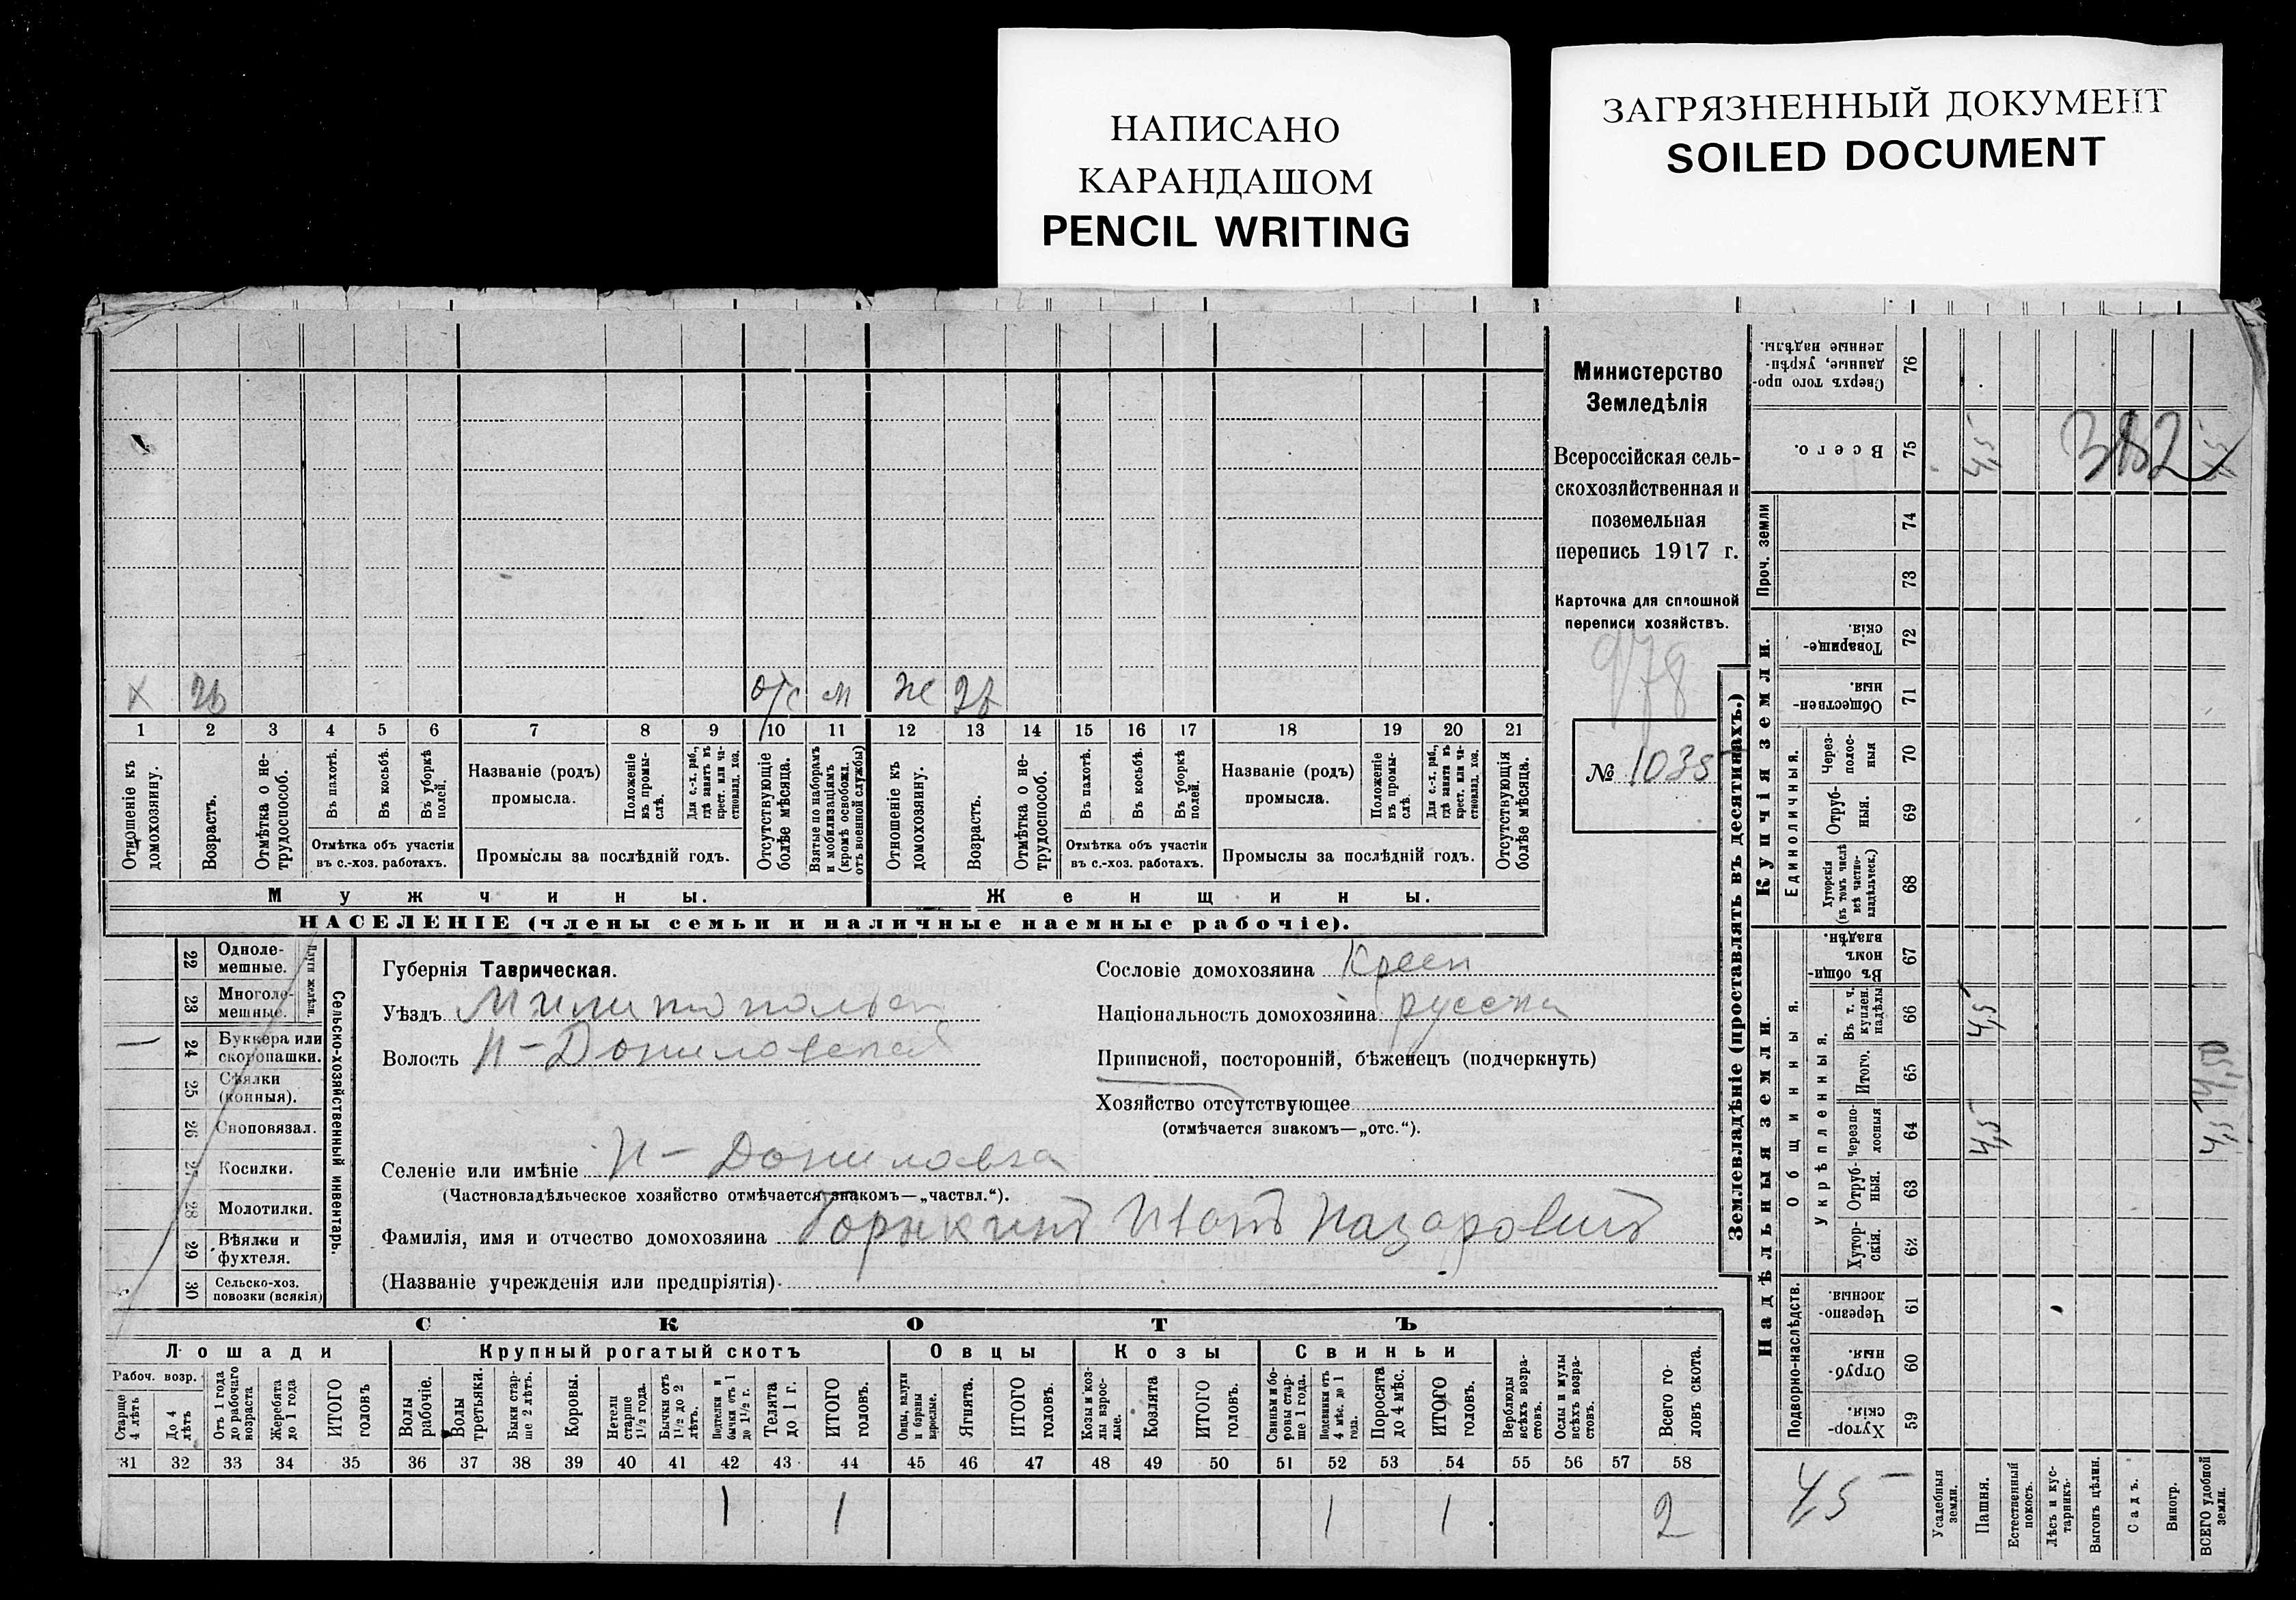 НАПИСАНО
КАРАНДАШОМ
PENCIL WRITING
ЗАГРЯЗНЕННЫЙ ДОКУМЕНТ
SOILED DOCUMENT
х 26 отс м ж 27
1 2 3 4 5 6 7 8 9 10 11 12 13 14 15 16 17 18 19 20 21
Отношеніе къ домохозяину.
Возрастъ.
Отмѣтка о не-трудоспособ.
Въ пахотѣ.
Въ косьбѣ.
Въ уборкѣ полей.
Отмѣтка объ участіи
въ с.-хоз. работахъ.
Названіе (родъ)
промысла.
Положеніе въ промы-слѣ.
Для с.-х. раб., гдѣ занятъ въ крест. или ча-стновлад. хоз.
Промыслы за послѣдній годъ.
Отсутствующіе болѣе мѣсяца.
Взятые по наборамъ и мобилизаціямъ (кромѣ освобожд. отъ военной службы)
Отношеніе къ домохозяину.
Возрастъ.
Отмѣтка о не-трудоспособ.
Въ пахотѣ.
Въ косьбѣ.
Въ уборкѣ полей.
Отмѣтка объ участіи
въ с.-хоз. работахъ.
Названіе (родъ)
промысла.
Положеніе въ промы-слѣ.
Для с.-х. раб., гдѣ занята въ крест. или ча-стновлад. хоз.
Промыслы за послѣдній годъ.
Отсутствующія болѣе мѣсяца.
Мужчины.
Женщины.
НАСЕЛЕНІЕ (члены семьи и наличные наемные рабочіе).
Министерство
Земледѣлія
Всероссійская сель-
скохозяйственная и
поземельная
перепись 1917 г.
Карточка для сплошной
переписи хозяйствъ.
978
№ 1035
22 Одноле-мешные.
23 Многоле-мешные.
Плуги желѣзн.
24 Буккера или скоропашки.
25 Сѣялки (конныя).
26 Сноповязал.
27 Косилки.
28 Молотилки.
29 Вѣялки и фухтеля.
30 Сельско-хоз. повозки (всякія)
Сельско-хозяйственный инвентарь.
Губернія Таврическая.
Уѣздъ Милитопольск
Волость Н-Дониловской
Сословіе домохозяина Крест
Національность домохозяина русск
Приписной, посторонній, бѣженецъ (подчеркнуть)
Хозяйство отсутствующее
(отмѣчается знакомъ—„отс.“).
Селеніе или имѣніе Н-Дониловка
(Частновладѣльческое хозяйство отмѣчается знакомъ—„частвл.“).
Фамилія, имя и отчество домохозяина Горыкинъ Иванъ Назаровичъ
(Названіе учрежденія или предпріятія)
СКОТЪ
Лошади
Крупный рогатый скотъ
Овцы
Козы
Свиньи
Рабоч. возр.
Старше 4 лѣтъ
До 4 лѣтъ
Отъ 1 года до рабочаго возраста
Жеребята до 1 года
ИТОГО головъ
Волы рабочіе.
Волы третьяки.
Быки стар-ше 2 лѣтъ.
Коровы.
Нетели старше 1½ года.
Бычки отъ 1½ до 2 лѣтъ.
бычки отъ 1 до 1½ г.
Телята до 1 г.
ИТОГО головъ.
Овцы, валухи и бараны взрослые.
Ягнята.
ИТОГО головъ.
Козы и коз-лы взрос-лые.
Козлята
ИТОГО головъ.
Свиньи и бо-ровы стар-ше 1 года.
Подсвинки отъ 4 мѣс. до 1 года.
Поросята до 4 мѣс.
ИТОГО головъ.
Верблюды всѣхъ возра-стовъ.
Ослы и мулы всѣхъ возра-стовъ.
Всего го-ловъ скота.
31 32 33 34 35 36 37 38 39 40 41 42 43 44 45 46 47 48 49 50 51 52 53 54 55 56 57 58
1 1 1 1 2
Землевладѣніе (проставлять въ десятинахъ.)
Сверхъ того про-данные, укрѣп-ленные надѣлы. 76
Всего. 75 4,5
382
Проч. земли 74 73
Купчія земли.
Товарище-скія. 72
Обществен-ныя. 71
Единоличныя.
Через-полос-ныя 70
Отруб-ныя. 69
Хуторскія (въ томъ числѣ всѣ частно-владѣльческ.) 68
Надѣльныя земли.
Общинныя.
Въ общин-номъ владѣн. 67
Укрѣпленныя.
Въ т. ч. куплен. надѣлы 66 4,5
Итого. 65
черезпо-лосныя 64 4,5 4,5
Отруб-ныя. 63
Хутор-скія. 62
Подворно-наслѣдств.
Черезпо-лосныя 61
Отруб-ныя. 60
Хутор-скія. 59
4,5
Усадебныя земли.
Пашня.
Естественный покосъ.
Лѣсъ и кус-тарникъ.
Выгонъ цѣлин.
Садъ.
Виногр.
ВСЕГО удобной земли.